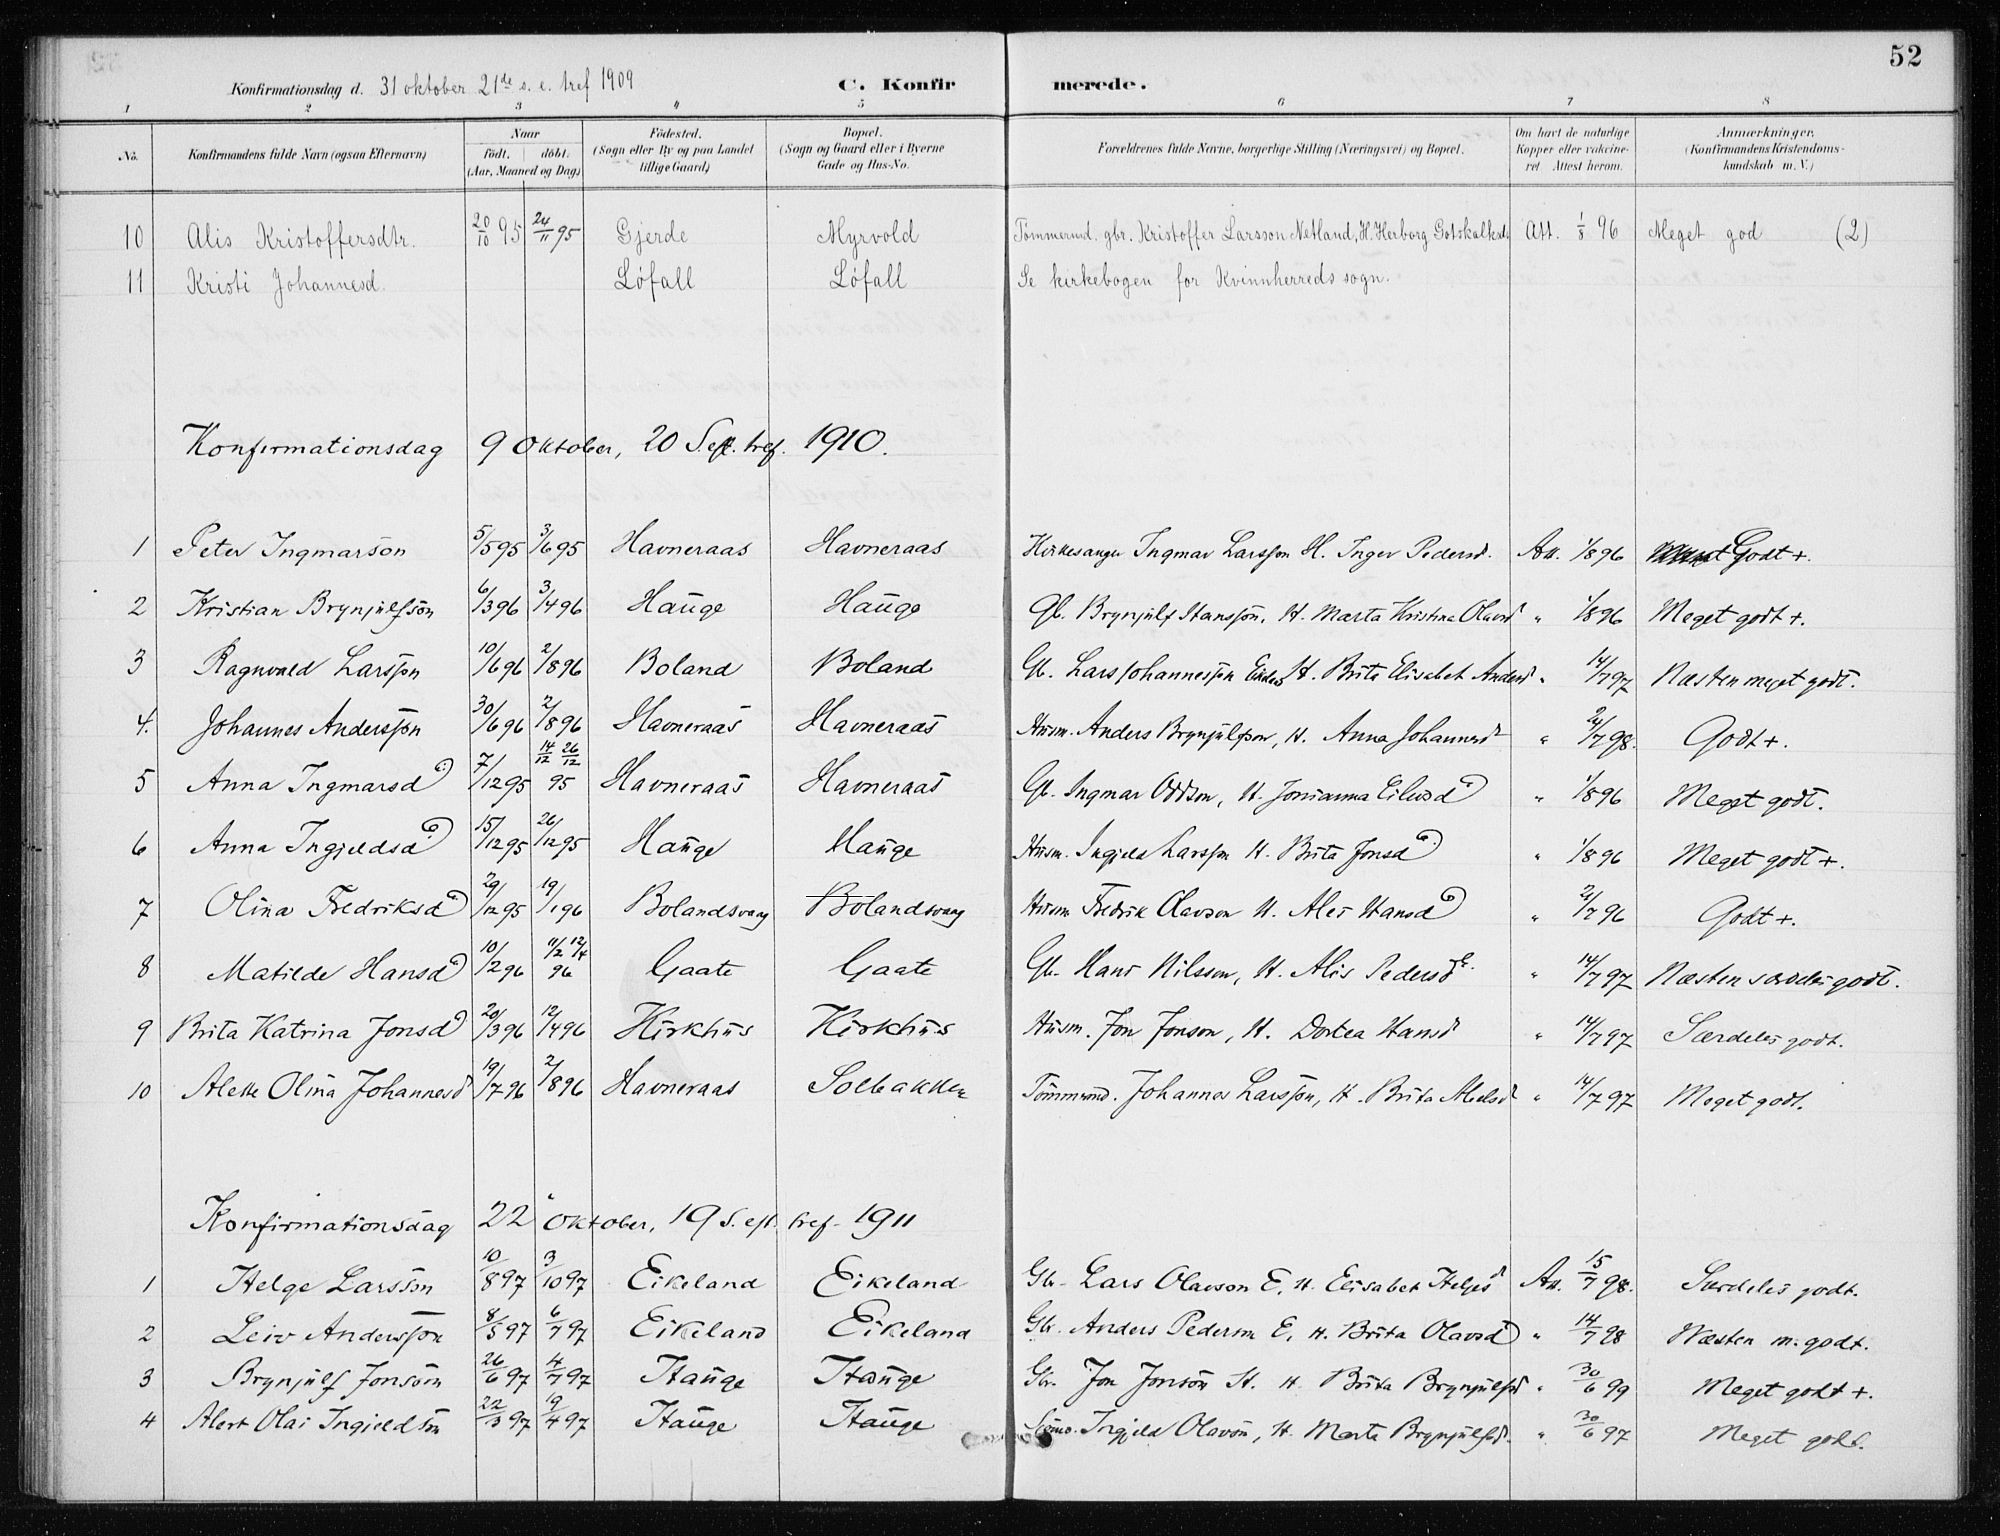 52
Konfirmationsdag d. 31 oktober 21de s. e. tref 1909 C. Konfirmerede.
1 2 3 4 5 6 7 8
No. Konfirmandens fulde Navn (ogsaa Efternavn) Naar födt. döbt. (Aar, Maaned og Dag) Födested. (Sogn eller By og paa Landet tillige Gaard) Bopæl. (Sogn og Gaard eller i Byerne Gade og Hus-No. Forældrenes fulde Navne, borgerlige Stilling (Næringsvei) og Bopæl. Om havt de naturlige Kopper eller vakcineret. Attest herom. Anmærkninger. (Konfirmandens Kristendomskundskab m. V.)
10 Alis Kristoffersdtr. 20/10 95 24/11 95 Gjerde Myrvold Tömmermd. gbr. Kristoffer Larsson Netland, H. Herborg Gotskalksd. Att. 1/8 96 Meget god (2)
11 Kristi Johannesd. Löfall Löfall Se kirkebogen for Kvinnherreds sogn.
Konfirmationsdag 9 Oktober, 20 S. eft. tref. 1910.
1 Peter Ingmarson 5/5 95 3/6 95 Havneraas Havneraas Kirkesanger Ingmar Larsson H. Inger Pedersd. Att. 1/8 96 Godt +.
2 Kristian Brynjulfson 6/3 96 3/4 96 Hauge Hauge Gb. Brynjulf Hansson, H. Marta Kristina Olavsd " 1/8 96 Meget godt +.
3 Ragnvald Larsson 10/6 96 2/8 96 Boland Boland Gb. Lars Johannesson H. Brita Elisabet Andersd " 14/7 97 Næsten meget godt.
4. Johannes Andersson 30/6 96 2/8 96 Havneraas Havneraas Husm. Anders Brynjulfson, H. Anna Johannesd " 24/7 98. Godt +.
5 Anna Ingmarsd 7/12 95 14/12 26/12 95 Havneraas Havneraas Gb. Ingmar Oddson, H. Josianna Eilevsd " 1/8 96 Meget godt.
6 Anna Ingjeldsd 15/12 95 26/12 95 Hauge Hauge Husm. Ingjeld Larsson H. Brita Jonsd " 1/8 96 Meget godt +.
7 Olina Fredriksd 29/12 95 19/1 96 Bolandsvaag Bolandsvaag Husm Fredrik Olavson H. Ales Hansd " 21/7 96 Godt +.
8 Matilde Hansd 10/2 96 11/2 12/4 96 Gaate Gaate Gb. Hans Nilsson, H. Alis Pedersd " 14/7 97 Næsten særdeles godt.
9 Brita Katrina Jonsd 20/3 96 12/4 96 Kirkhus Kirkhus Husm. Jon Jonson, H. Dortea Hansd " 14/7 97 Særdeles godt.
10 Alette Olina Johannesd 19/7 96 2/8 96 Havneraas Solbakken Tömmermd. Johannes Larsson, H. Brita Nielsd " 14/7 97 Meget godt.
Konfirmationsdag 22 oktober, 19 S. eft. tref. 1911
1 Helge Larsson 10/8 97 3/10 97 Eikeland Eikeland Gb. Lars Olavson E, H. Elisabet Helgesd Att. 15/7 98. Særdeles godt.
2 Leiv Andersson 8/5 97 6/7 97 Eikeland Eikeland Gbr. Anders Pederson E, H. Brita Olavsd " 14/7 98 Næsten m. godt.
3 Brynjulf Jonson 26/6 97 4/7 97 Hauge Hauge Gbr. Jon Jonson H. H. Brita Brynjulfsd " 30/6 99 Meget godt +.
4 Alert Olai Ingjeldson 22/3 97 19/4 97 Hauge Hauge Ingjeld Olavson, H. Marta Brynjulfsd. " 30/6 97 Meget godt.